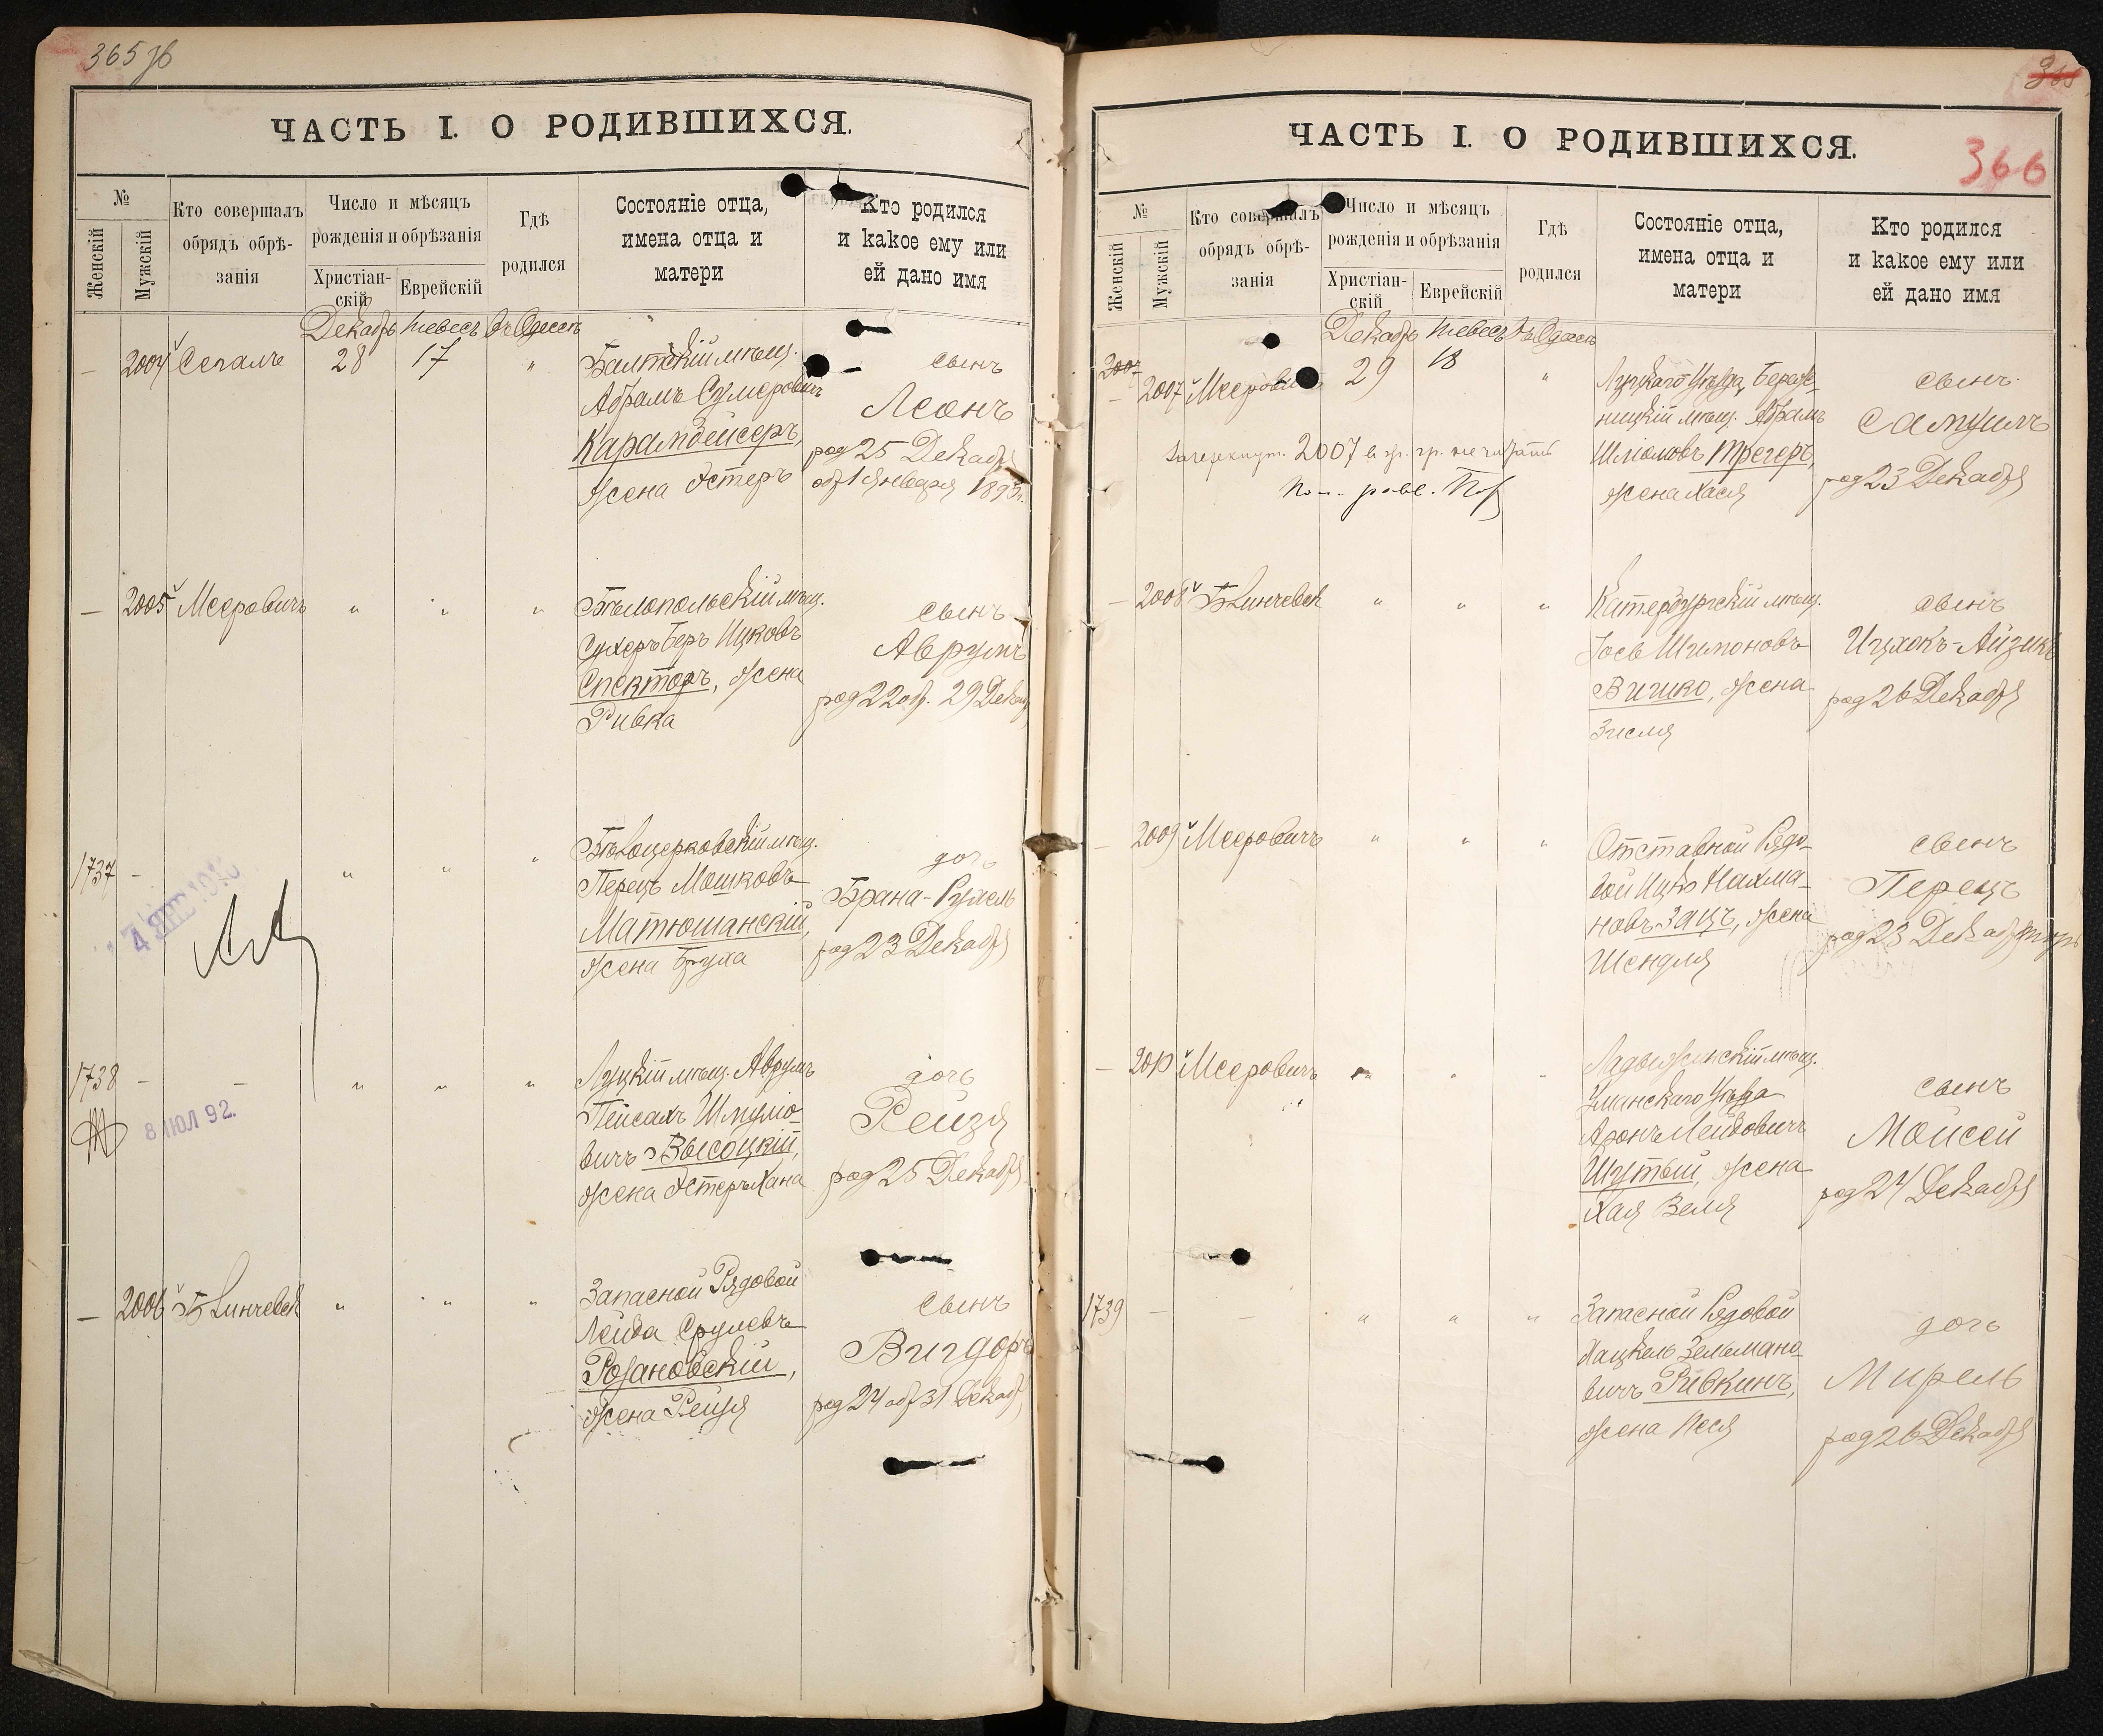 365 об
ЧАСТЬ I. О РОДИВШИХСЯ.
№
Женскій
Мужскій
Кто совершалъ
обрядъ обрѣ-
занія
Число и мѣсяцъ
рожденія и обрѣзанія
Христіан-
скій
Еврейскій
Гдѣ
родился
Состояніе отца,
имена отца и
матери
Кто родился
и какое ему или
ей дано имя
Декабрь Тевесъ Въ Одессѣ
— 2004 Сегаль 28 17 "
Балтскій мѣщ.
Абрамъ Сумеровичъ
Карамбейсеръ,
жена Эстеръ
сынъ
Леонъ
род 25 Декабря
обр 1 Января 1893 г.
— 2005 Мееровичъ " " "
Бѣлопольскій мѣщ.
Сухеръ Беръ Ицковъ
Спекторъ, жена
Ривка
сынъ
Аврумъ
род 22 обр. 29 Декаб
1737 — " " "
4 ЯНВ
Бѣлоцерковскій мѣщ.
Перецъ Мошковъ
Матюшанскій,
жена Бруха
дочь
Брана-Рухель
род 23 Декабря
1738 — — " " "
8 ІЮЛ 92.
Луцкій мѣщ. Аврумъ
Пейсахъ Шмуліо-
вичъ Высоцкій,
жена Эстеръ Хана
дочь
Рейзя
род 25 Декабря
— 2006 Блинчевск " " "
Запасной Рядовой
Лейба Срулевъ
Розановскій,
жена Рейзя
сынъ
Вигдоръ
род 24 обр 31 Декаб
ЧАСТЬ I. О РОДИВШИХСЯ.
366
№
Женскій
Мужскій
Кто совершалъ
обрядъ обрѣ-
занія
Число и мѣсяцъ
рожденія и обрѣзанія
Христіан-
скій
Еврейскій
Гдѣ
родился
Состояніе отца,
имена отца и
матери
Кто родился
и какое ему или
ей дано имя
Декабрь Тевесъ Въ Одессѣ
2007
— 2007 Мееровичъ 29 18 "
Зачеркнут. 2007 не читать
Луцкаго Уѣзда, Береж-
ницкій мѣщ. Абрамъ
Шліомовъ Трегеръ,
жена Хася
сынъ
Самуилъ
род 23 Декабря
— 2008 Блинчевск " " "
Катербургскій мѣщ.
Іось Шимоновъ
Вишко, жена
Зисля
сынъ
Ицхокъ-Айзикъ
род 26 Декабря
— 2009 Мееровичъ " " "
Отставной Рядо-
вой Ицко Нахма-
новъ Зацъ, жена
Шендля
сынъ
Перецъ
род 23 Декабря
— 2010 Мееровичъ " " "
Ладыжинскій мѣщ.
Уманскаго Уѣзда
Аронъ Лейбовичъ
Шутый, жена
Хая Веля
сынъ
Моисей
род 24 Декабря
1739 — — " " "
Запасной Рядовой
Хацкель Зельмано-
вичъ Рибкинъ,
жена Песя
дочь
Мирель
род 26 Декабря